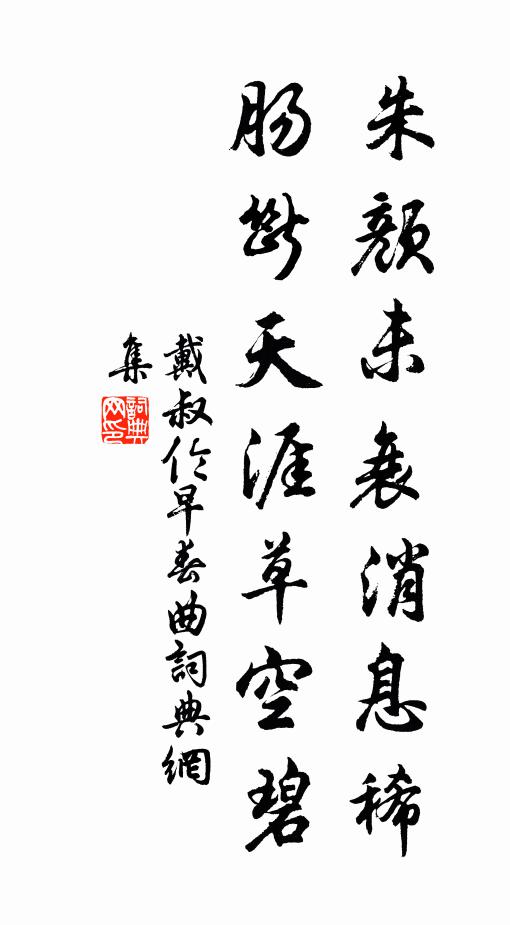 朱顏未衰消息稀
肠斷天涯草空碧
戴叔伦早春曲詞典網
集
詞典
网印